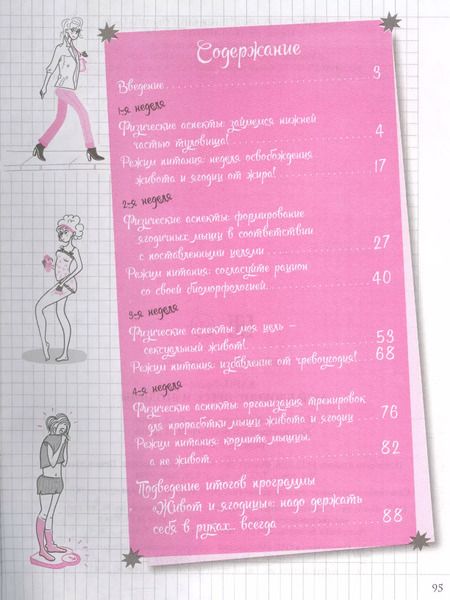 Содержание
Введение 9
1-я неделя
Физические аспекты: займемся нижней
частью туловища! 4
Режим питания: неделя освобождения
живота и ягодиц от жира! 17
2-я неделя
Физические аспекты: формирование
ягодичных мышц в соответствии
с поставленными целями 27
Режим питания: согласуйте рацион
со своей биоморфологией. 40
3-я неделя
Физические аспекты: моя цель –
сексуальный живот! 59
Режим питания: избавление от чревоугодия! 68
4-я неделя
Физические аспекты: организация тренировок
для проработки мышц живота и ягодиц 76
Режим питания: кормите мышцы,
а не живот. 82
Подведение итогов программы
«Живот и ягодицы»: надо держать
себя в руках... всегда 88
95